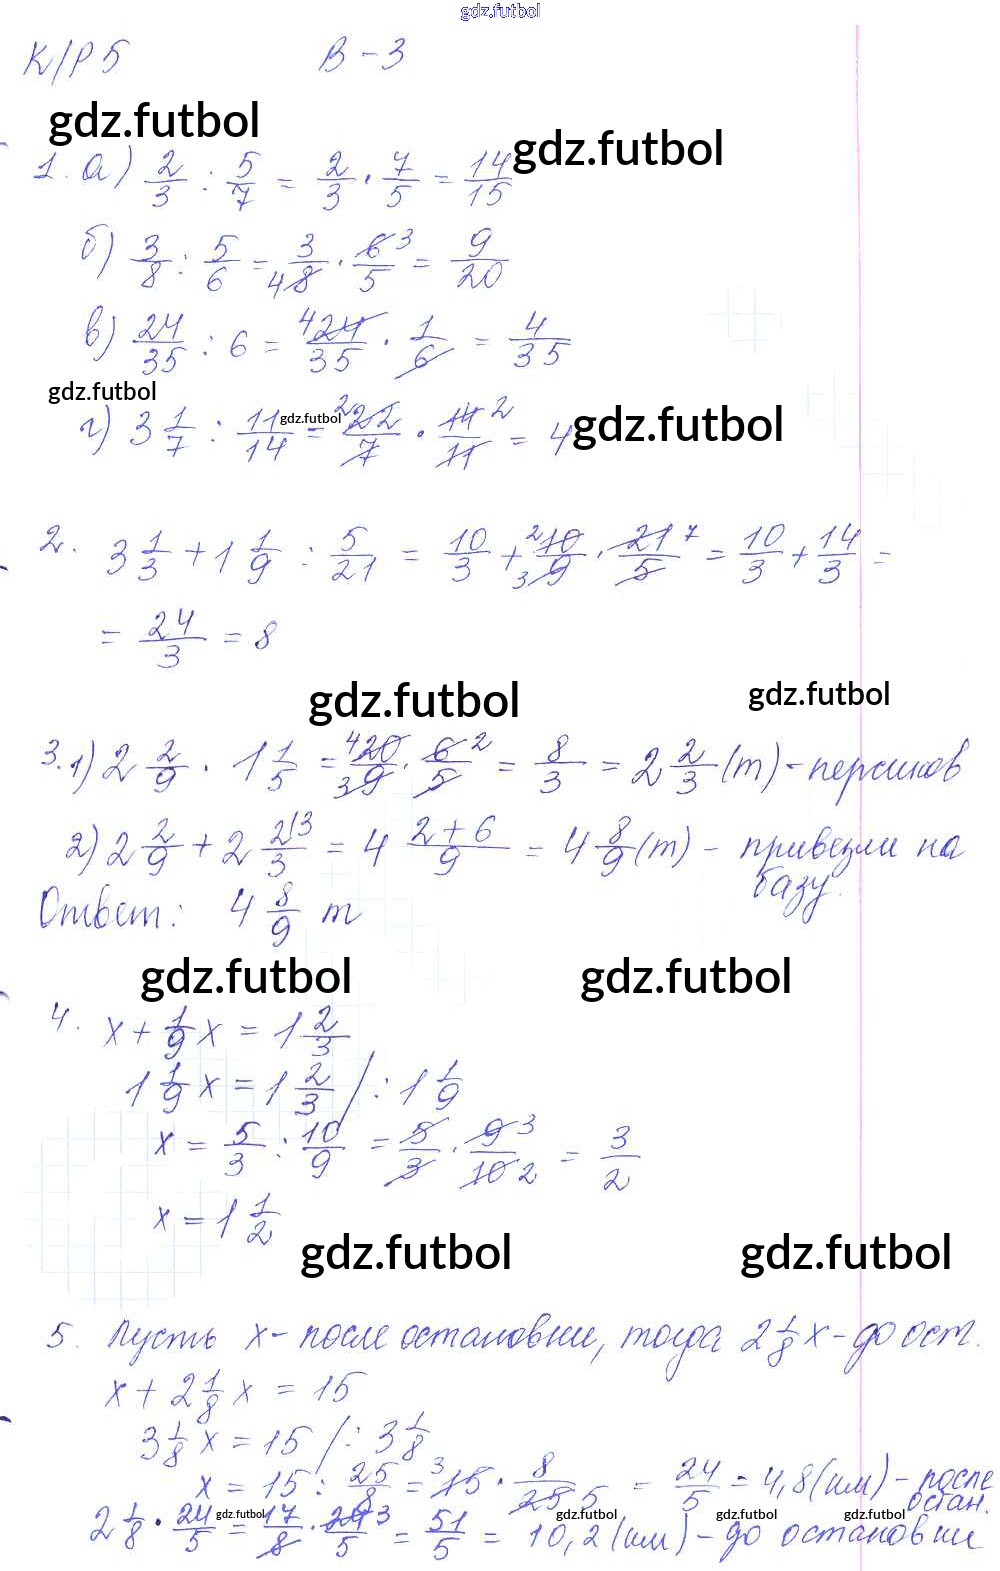 gdz.futbol
К/Р 5 В - 3
gdz.futbol gdz.futbol
1. а) 2/3 : 5/7 = 2/3 · 7/5 = 14/15
б) 3/8 : 5/6 = 3/4 8 · 6 3/5 = 9/20
в) 24/35 : 6 = 4 24/35 · 1/6 = 4/35
gdz.futbol
г) 3 1/7 : 11/14 = 2 22/7 · 14 2/11 = 4
gdz.futbol gdz.futbol
2. 3 1/3 + 1 1/9 : 5/21 = 10/3 + 2 10/3 9 · 21 7/5 = 10/3 + 14/3 =
= 24/3 = 8
gdz.futbol gdz.futbol
3. 1) 2 2/9 · 1 1/5 = 4 20/3 9 · 6 2/5 = 8/3 = 2 2/3 (т) - персиков
2) 2 2/9 + 2 2 13/3 = 4 2+6/9 = 4 8/9 (т) - привезли на
базу.
Ответ: 4 8/9 т
gdz.futbol gdz.futbol
4. x + 1/9 x = 1 2/3
1 1/9 x = 1 2/3 / : 1 1/9
x = 5/3 : 10/9 = 5/3 · 9 3/10 2 = 3/2
x = 1 1/2
gdz.futbol gdz.futbol
5. Пусть x - после остановки, тогда 2 1/8 x - до ост.
x + 2 1/8 x = 15
3 1/8 x = 15 / : 3 1/8
x = 15 : 25/8 = 3 15 · 8/25 5 = 24/5 = 4,8 (км) - после
остан.
gdz.futbol gdz.futbol gdz.futbol
2 1/8 · 24/5 = 17/8 · 24 3/5 = 51/5 = 10,2 (км) - до остановки